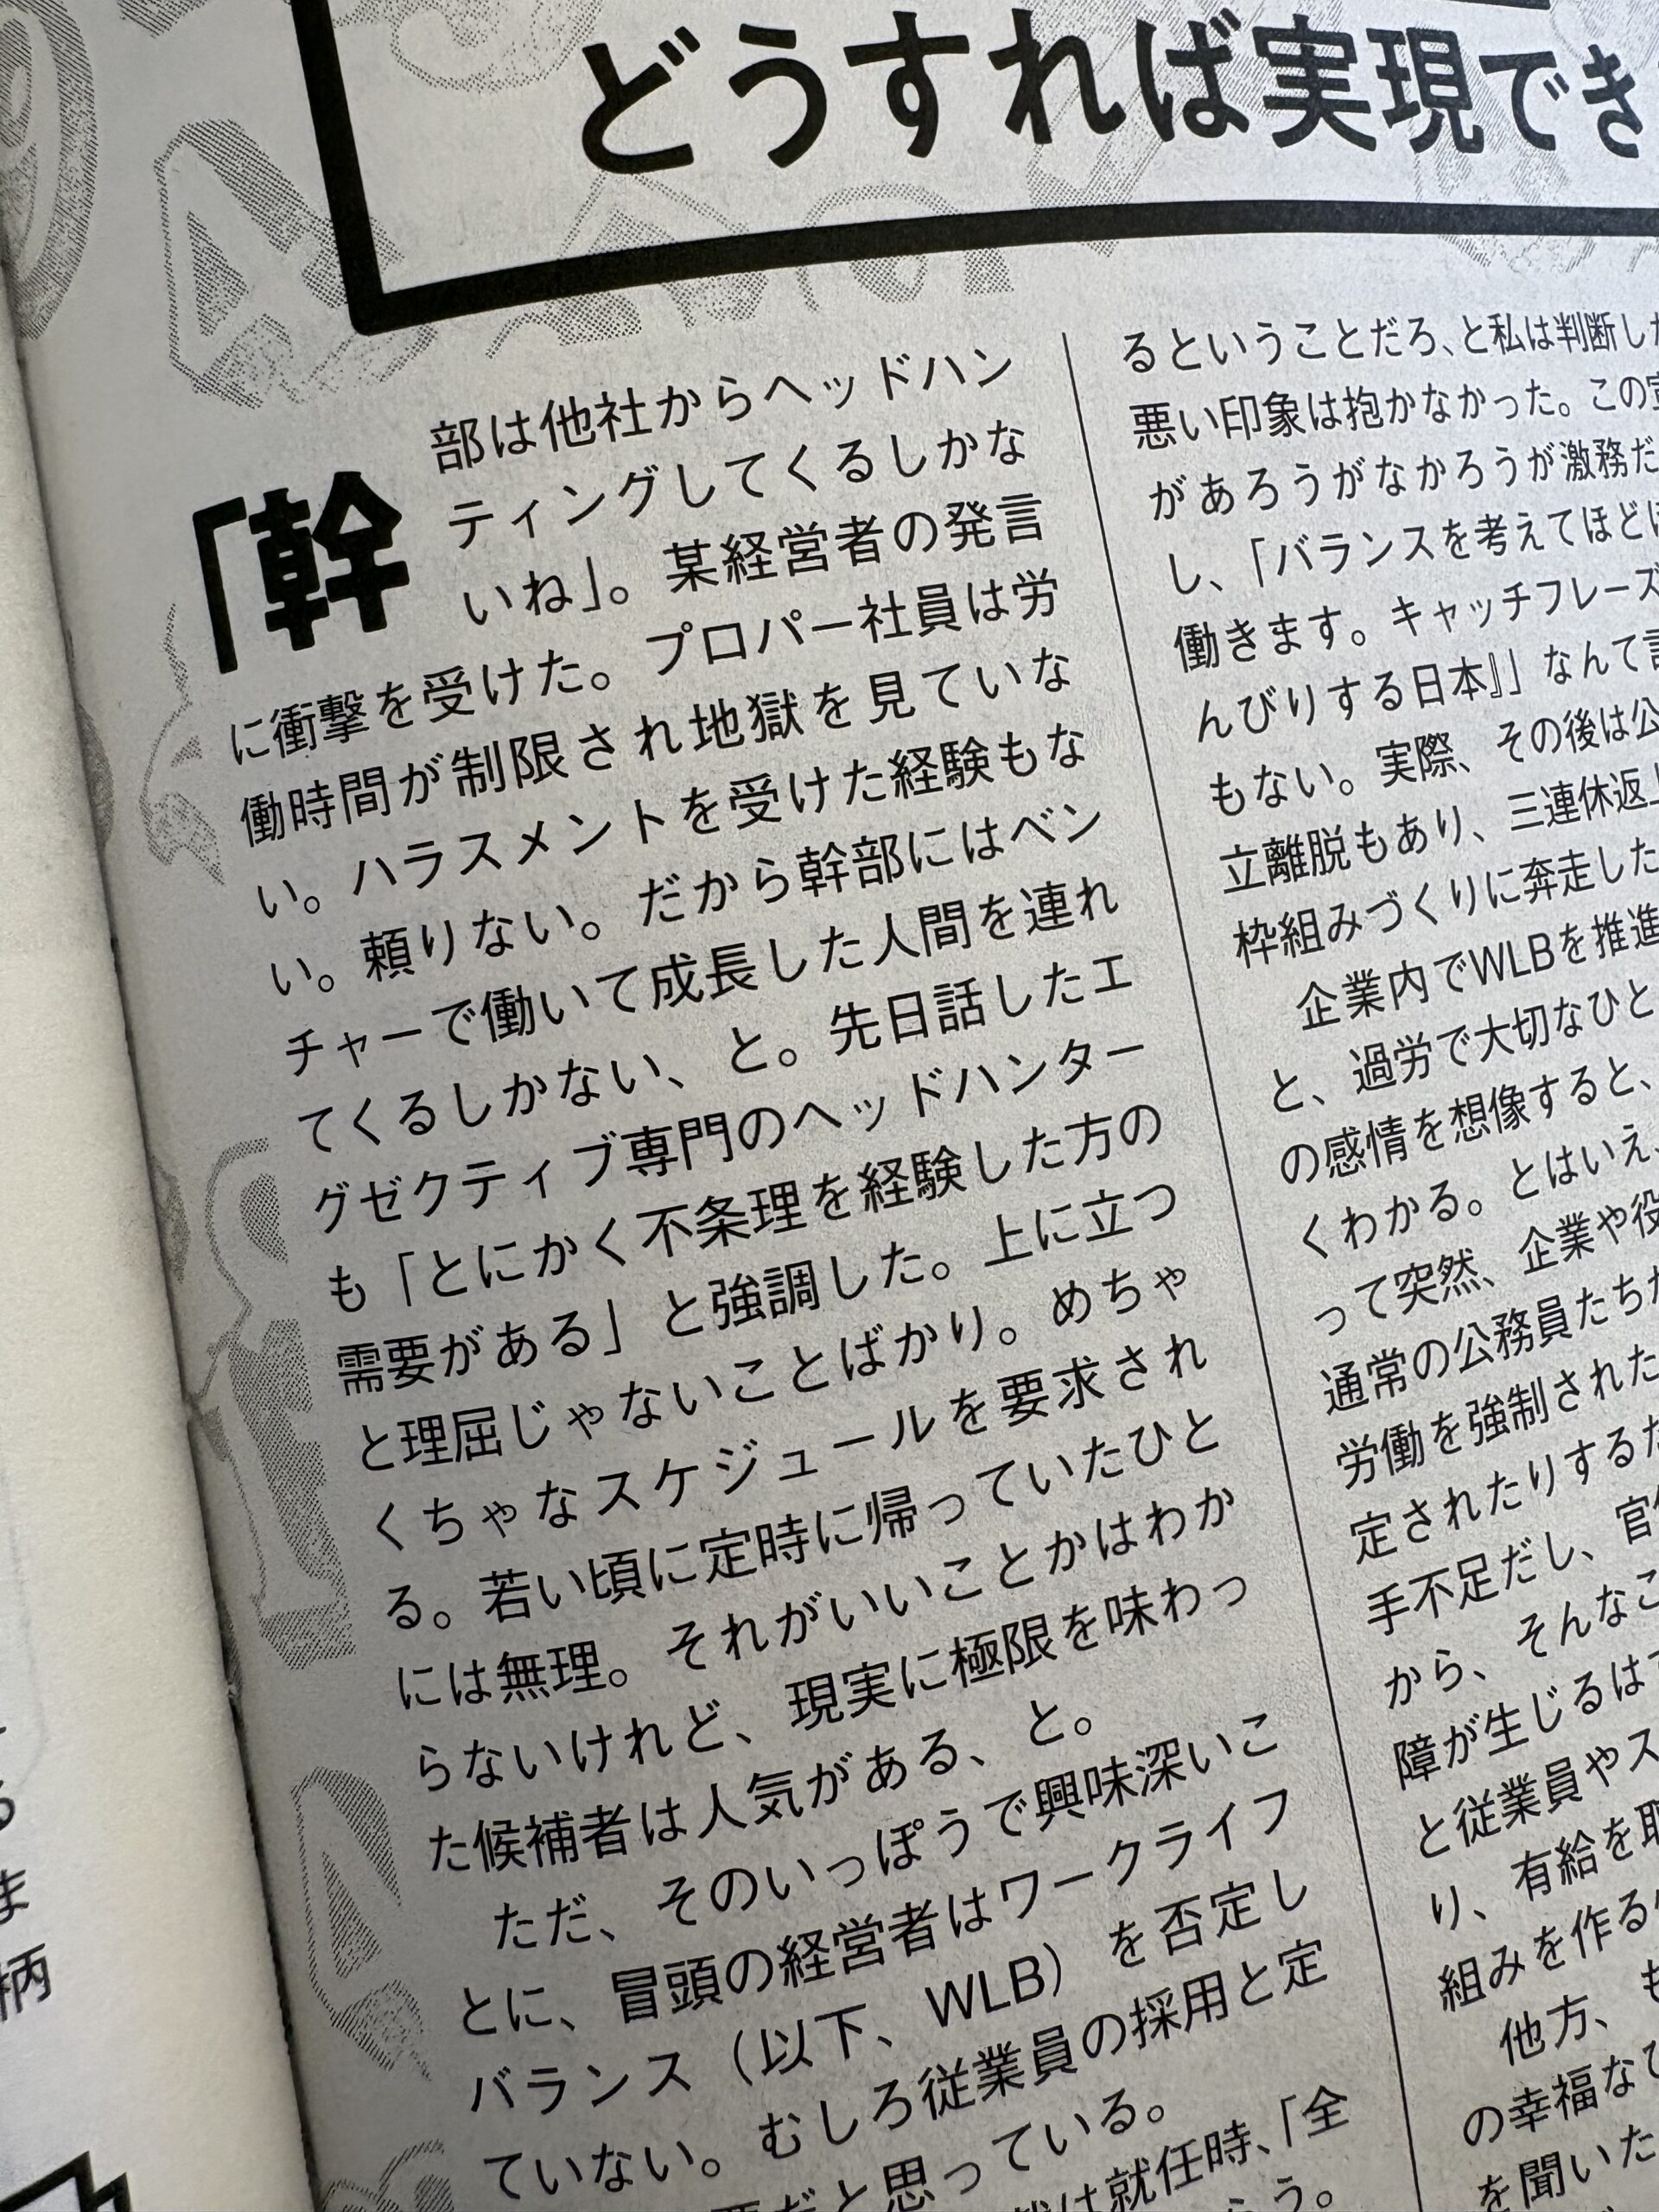 どうすれば実現でき
「幹
部は他社からヘッドハン
ティングしてくるしかな
いね」。某経営者の発言
に衝撃を受けた。プロパー社員は労
働時間が制限され地獄を見ていな
い。ハラスメントを受けた経験もな
い。頼りない。だから幹部にはベン
チャーで働いて成長した人間を連れ
てくるしかない、と。先日話したエ
グゼクティブ専門のヘッドハンター
も「とにかく不条理を経験した方の
需要がある」と強調した。上に立つ
と理屈じゃないことばかり。めちゃ
くちゃなスケジュールを要求され
る。若い頃に定時に帰っていたひと
には無理。それがいいことかはわか
らないけれど、現実に極限を味わっ
た候補者は人気がある、と。
ただ、そのいっぽうで興味深いこ
とに、冒頭の経営者はワークライフ
バランス（以下、WLB）を否定し
ていない。むしろ従業員の採用と定
だと思っている。
は就任時、「全
う。
るということだろ、と私は判断した
悪い印象は抱かなかった。この
があろうがなかろうが激務だ
し、「バランスを考えてほど
働きます。キャッチフレーズ
んびりする日本』」なんて
もない。実際、その後は公
立離脱もあり、三連休返上
枠組みづくりに奔走した
企業内でWLBを推進
と、過労で大切なひと
の感情を想像すると、
くわかる。とはいえ、
って突然、企業や役
通常の公務員たちが
労働を強制された
定されたりする
手不足だし、官
から、そんなこ
障が生じるは
と従業員やス
り、有給を取
組みを作る
他方、も
の幸福な
を聞いた
る
ま
柄